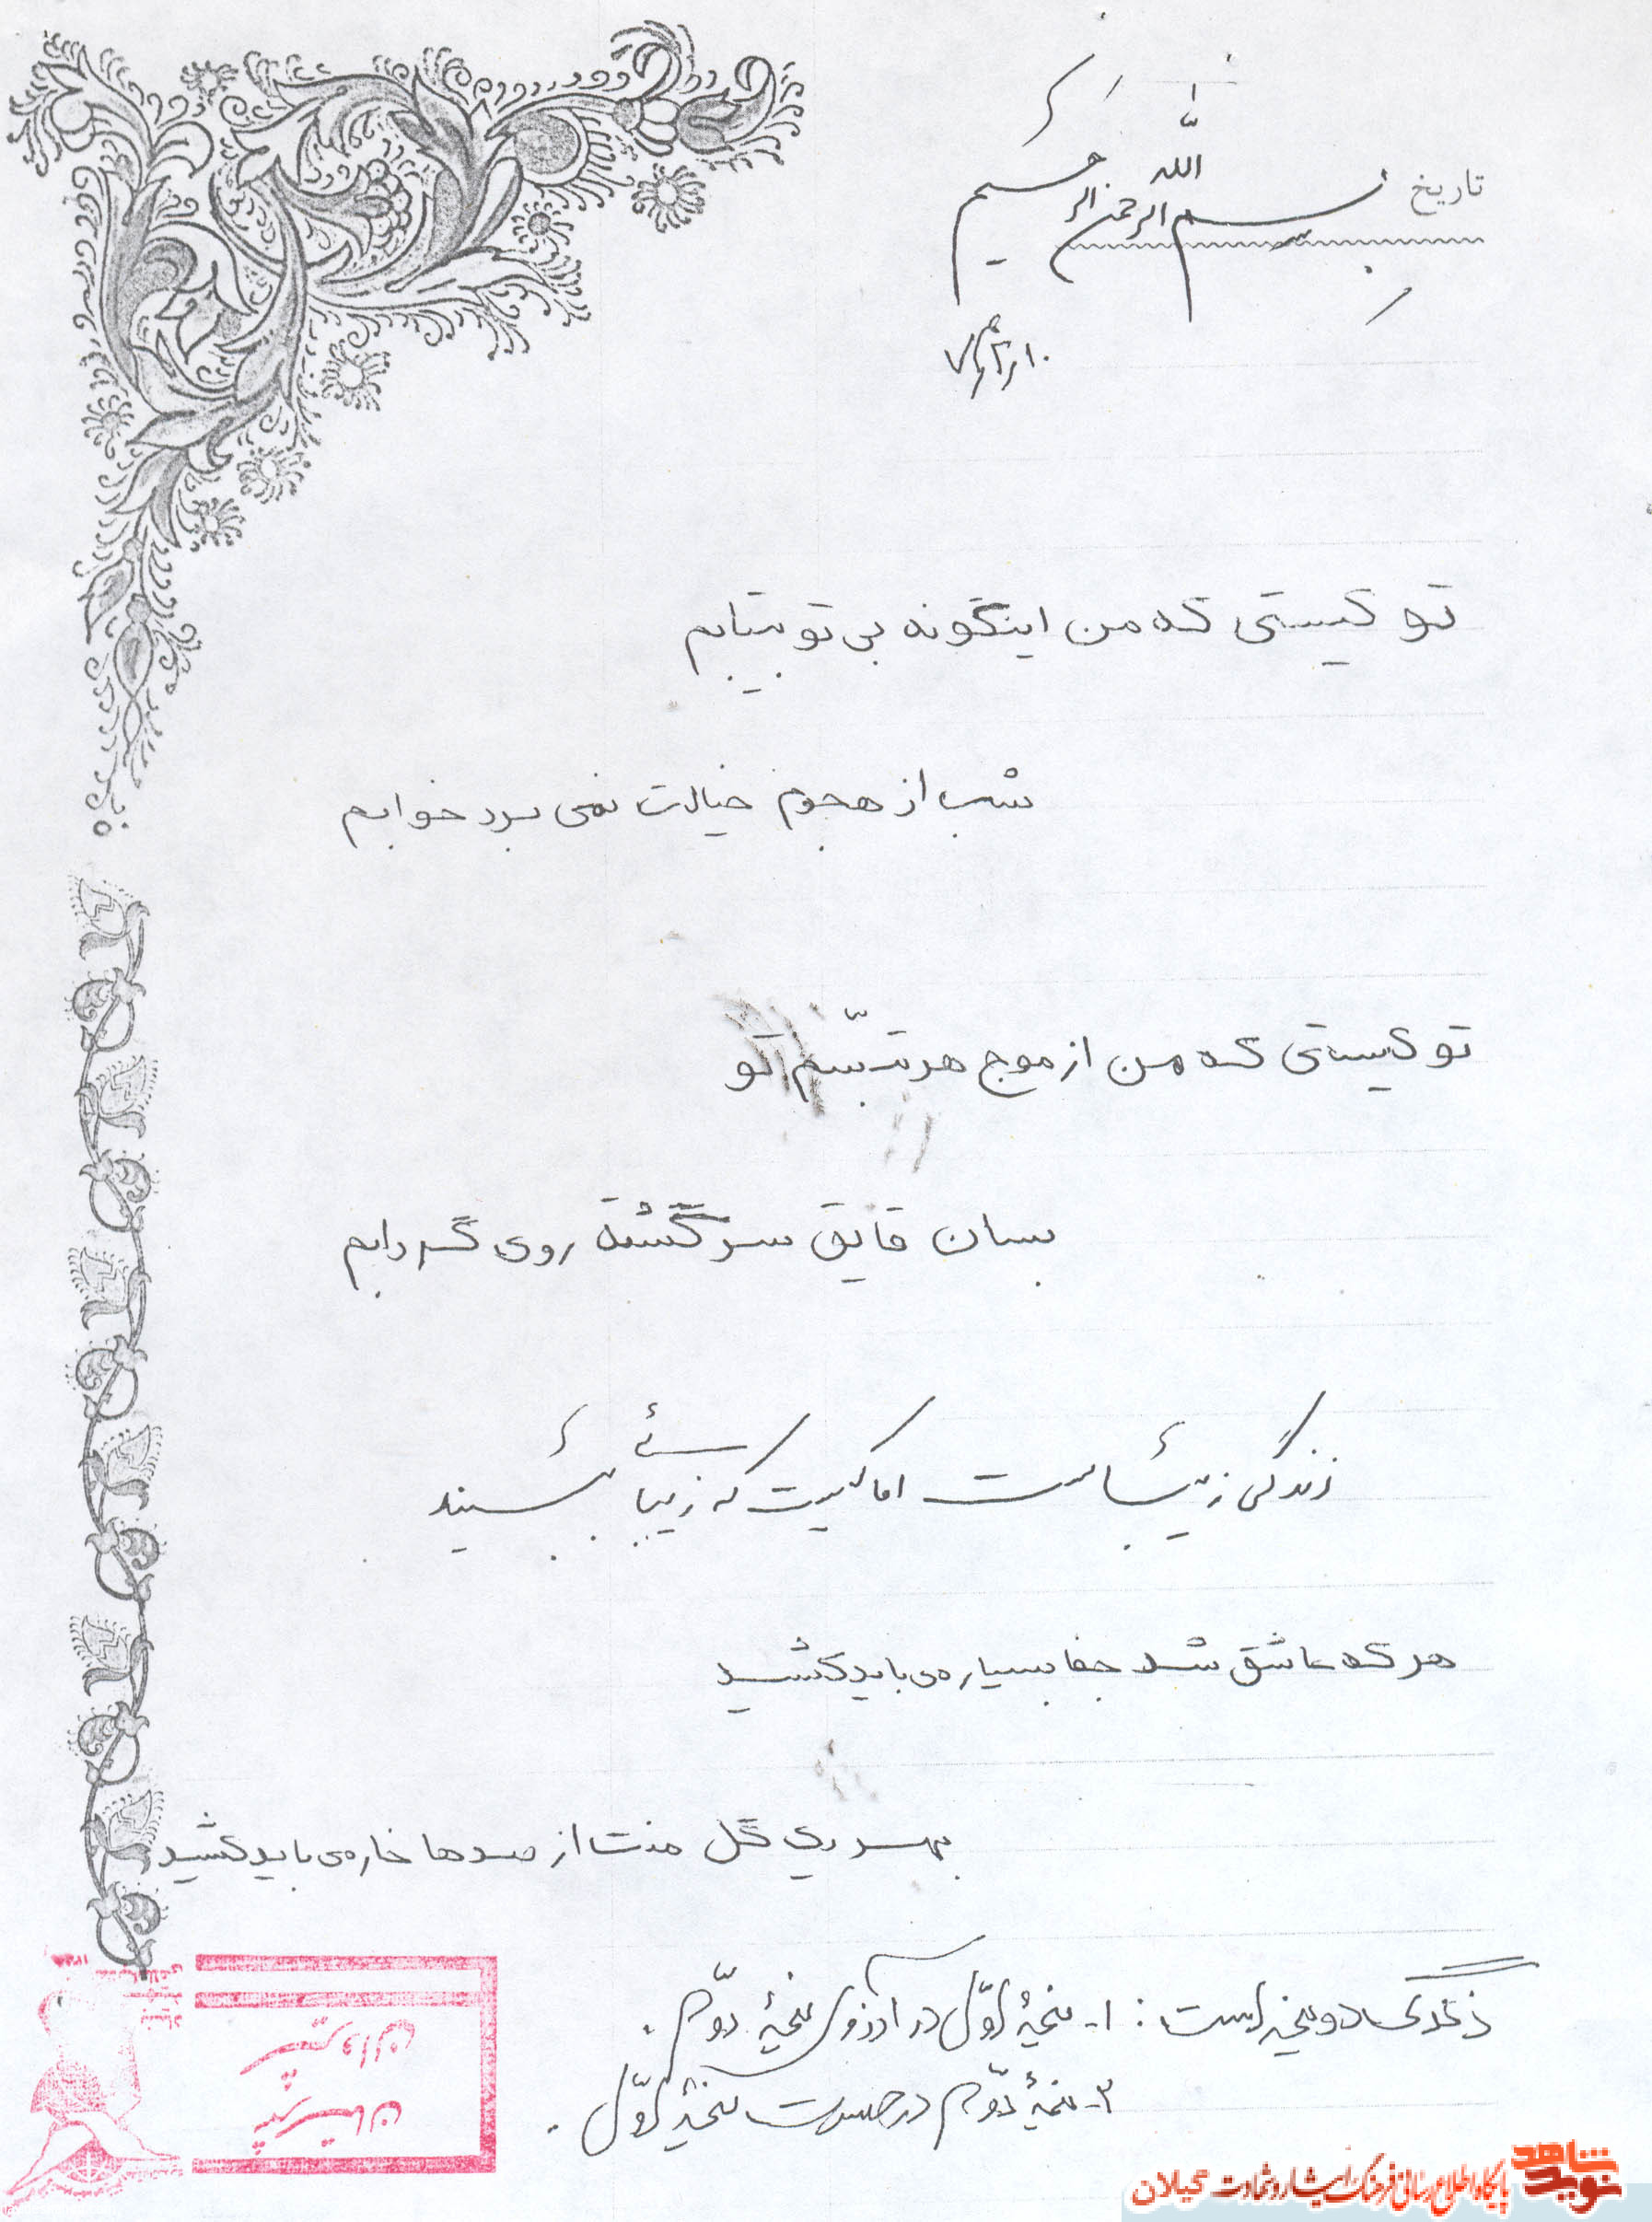 تاریخ
بسم الله الرحمن الرحیم
تو کیستی که من اینگونه بی تو بیتابم
شب از هجوم خیالت نمی برد خوابم
تو کیستی که من از موج هر تبسّم تو
بسان قایق سرگشته روی گردابم
زندگی زیباست اما کیست که زیبائی ببیند
هر که عاشق شد جفا بسیار می باید کشید
بهر یک گل منت از صدها خار می باید کشید
زندگی دو نیمه است : ۱- نیمهٔ اوّل در آرزوی نیمهٔ دوّم .
۲- نیمهٔ دوّم در حسرت نیمهٔ اوّل .
نوید شاهد
پایگاه اطلاع رسانی فرهنگ ایثار و شهادت گیلان